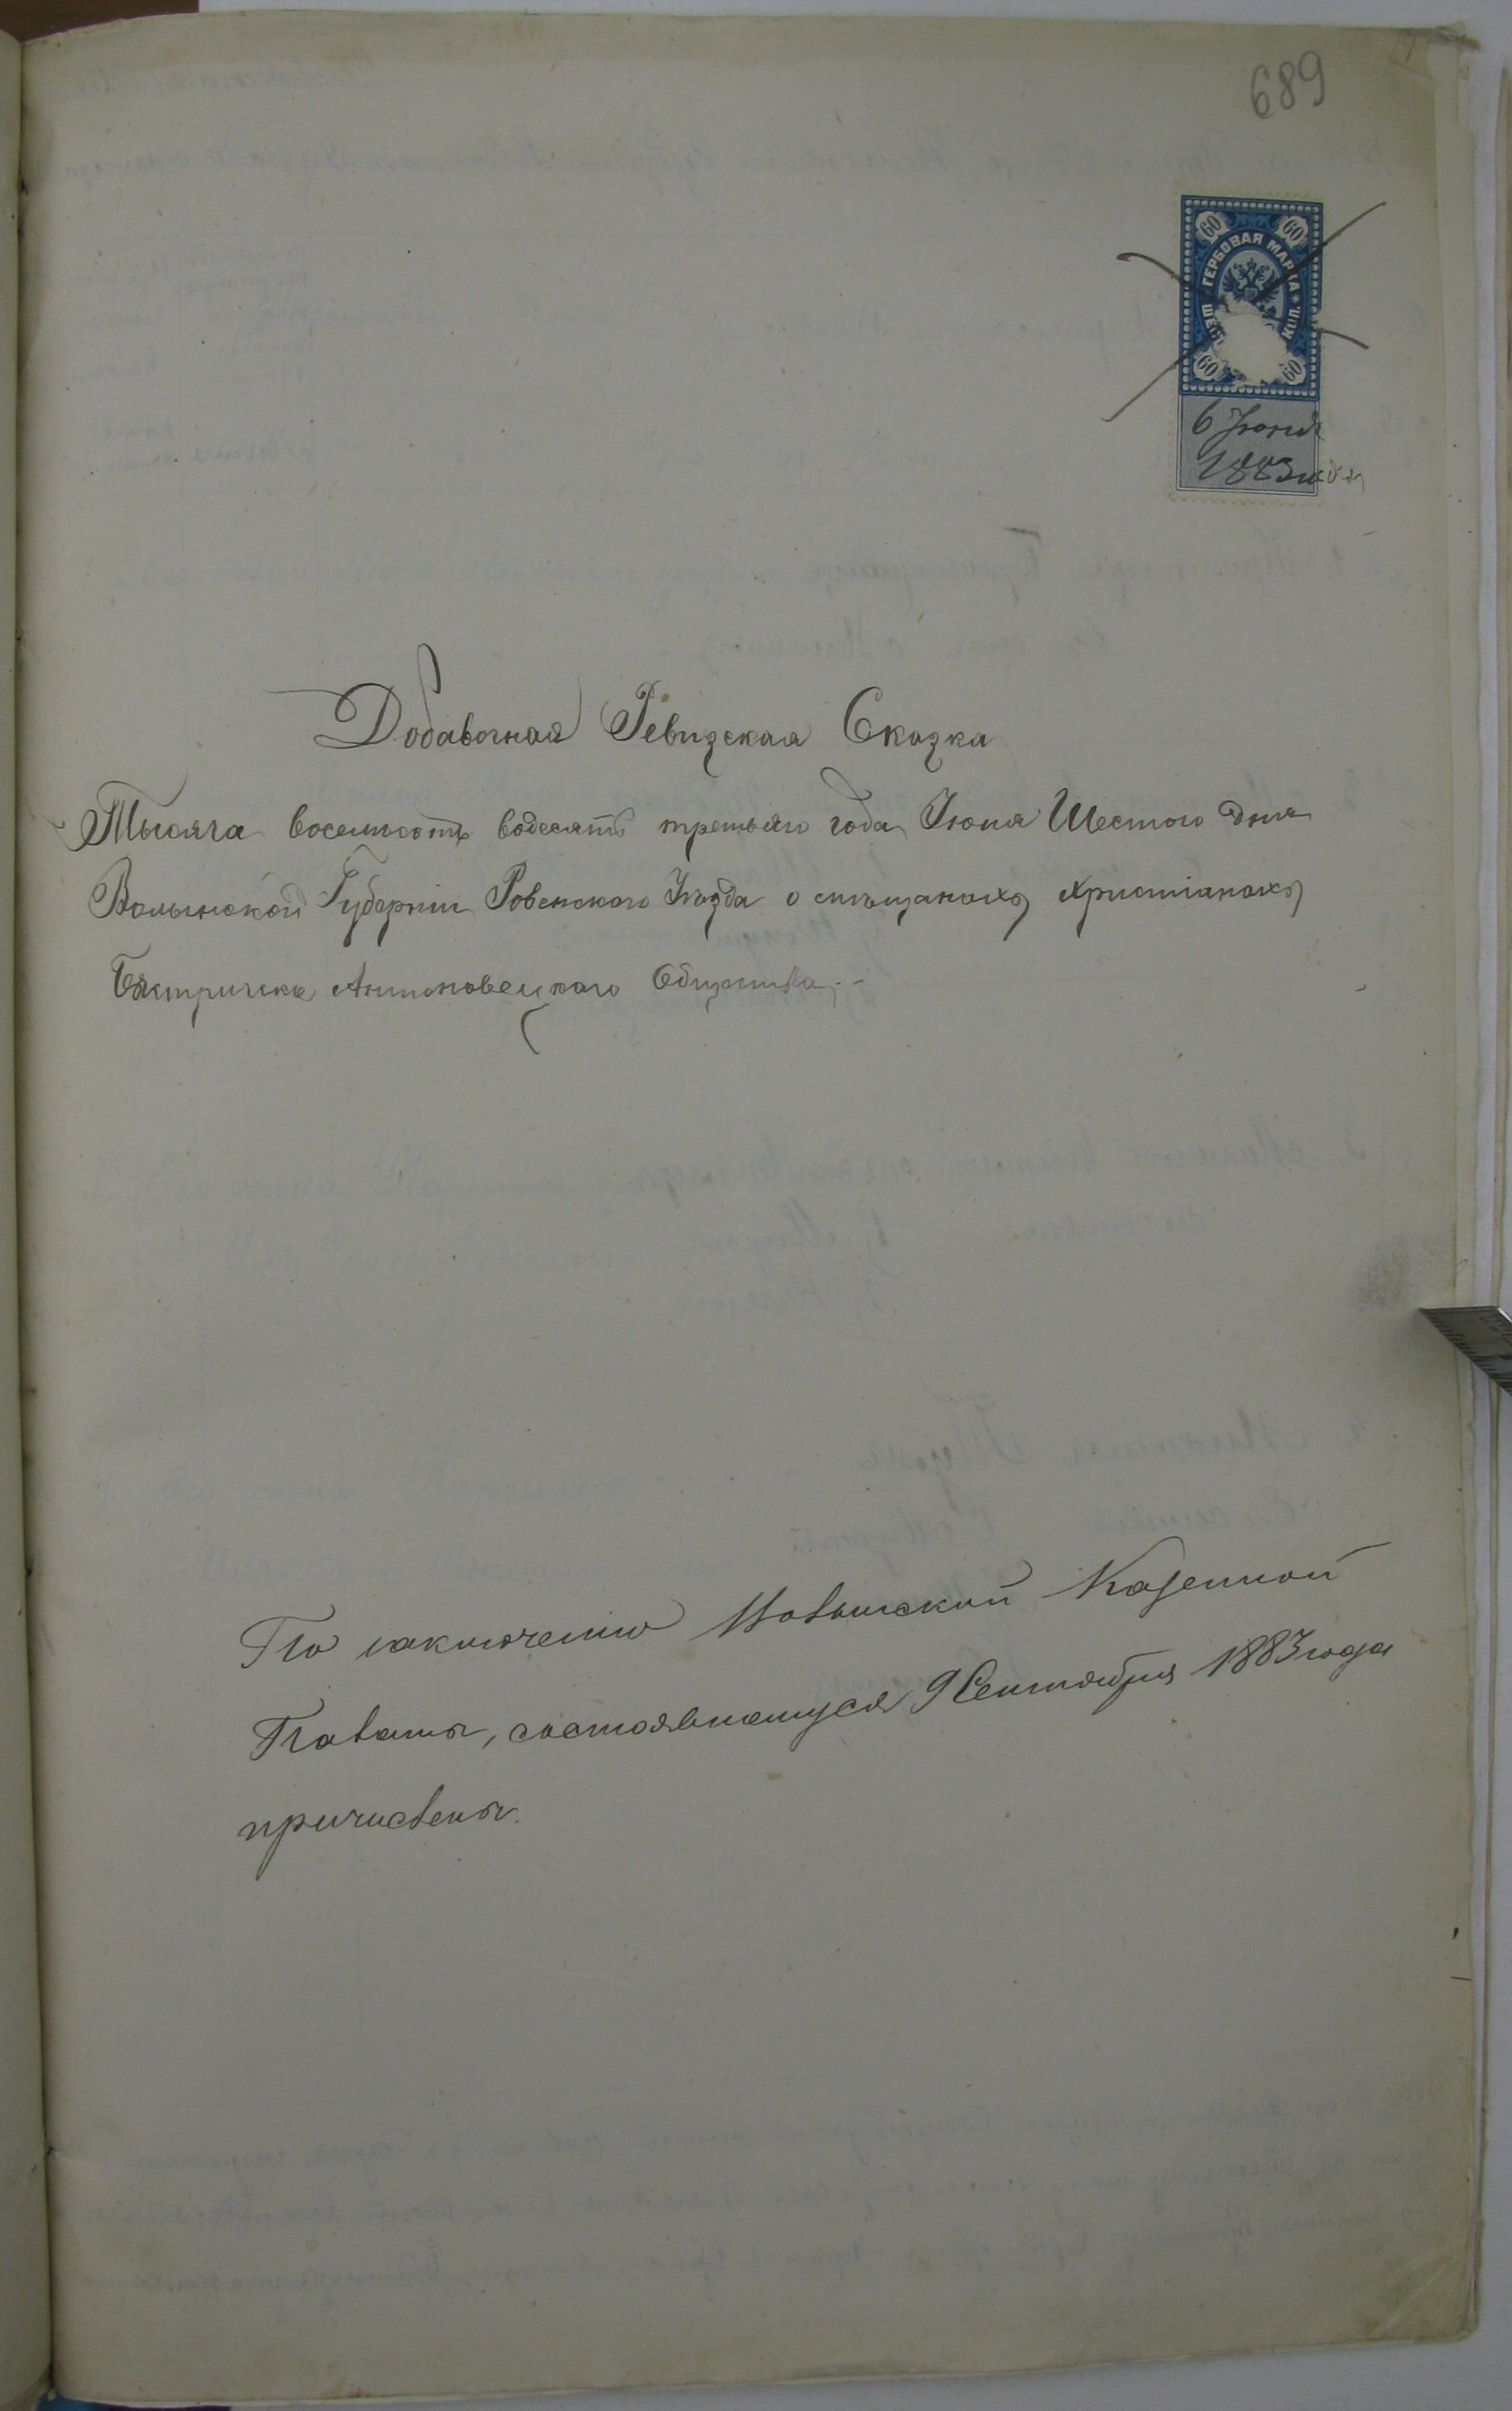 689
60 60
ГЕРБОВАЯ МАРКА
КОП.
60 60
6 Іюня
1883 года
Добавочная Ревизская Сказка
Тысяча восемьсотъ водесятъ третьяго года Іюня Шестого дня
Волынской Губерніи Ровенского Уѣзда о мѣщанахъ христіанахъ
Антоновецкого Общества
По заключенію Волынской Казенной
Палаты, состоявшемуся 9 Сентября 1883 года
причислены.